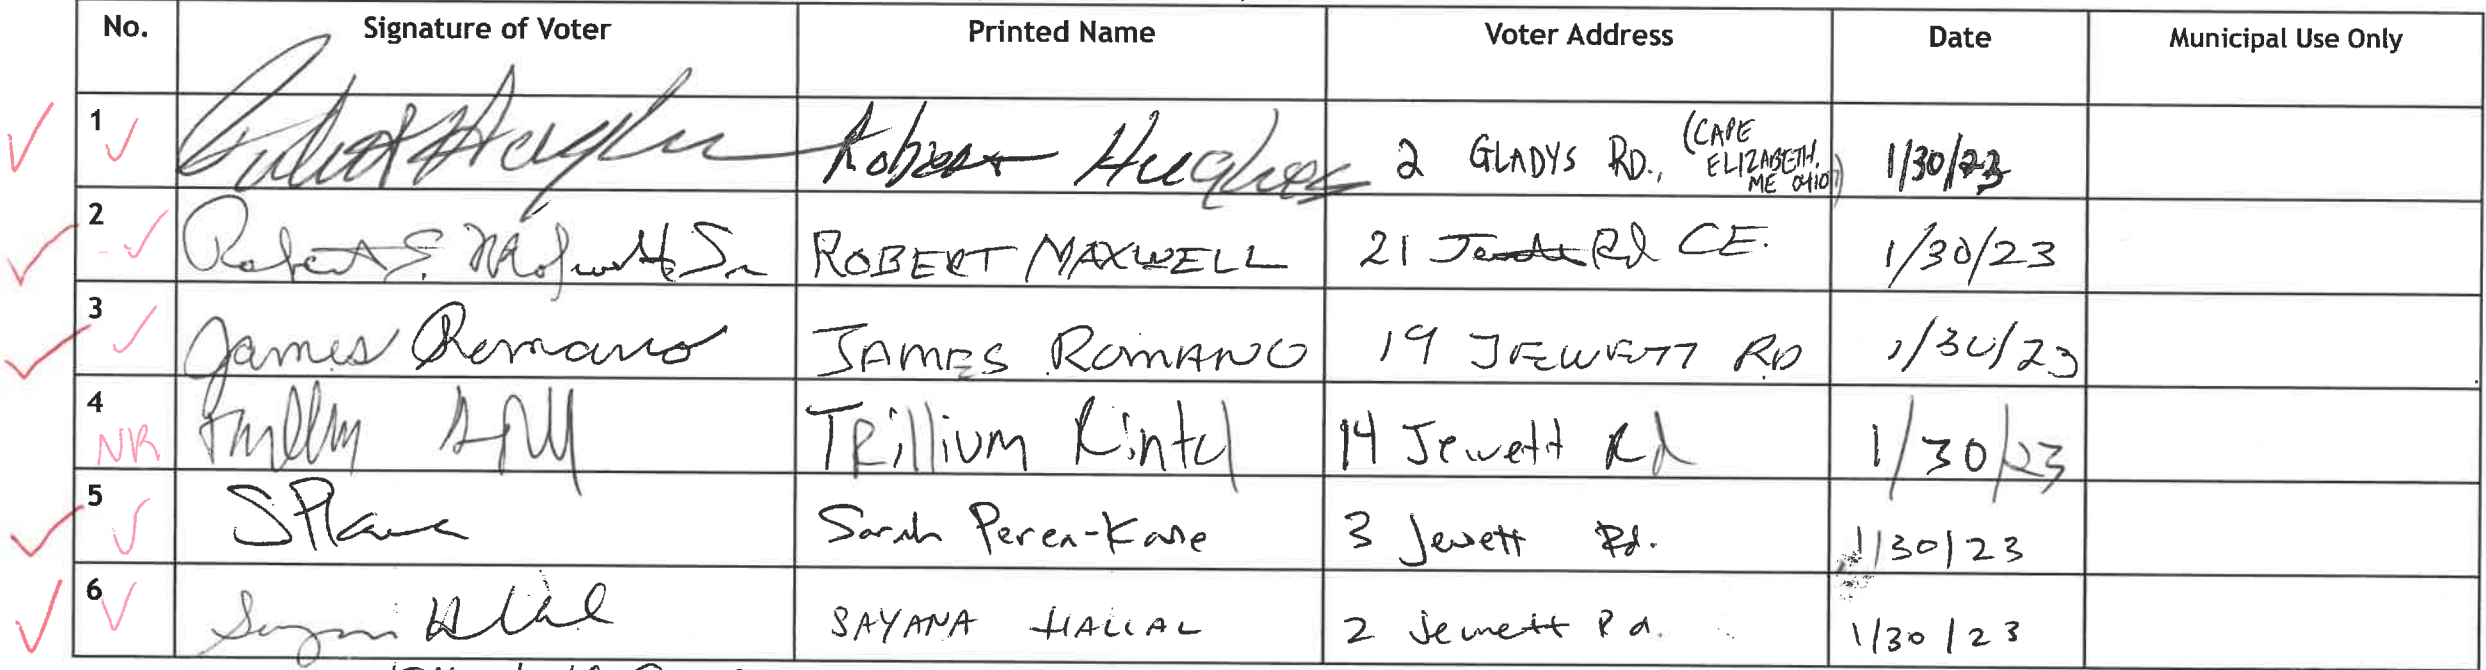 No. Signature of Voter Printed Name Voter Address Date Municipal Use Only
1 Robert Hughes Robert Hughes 2 GLADYS RD., (CAPE ELIZABETH, ME 04107) 1/30/23
2 Robert ROBERT MAXWELL 21 Rd CE. 1/30/23
3 James Romano JAMES ROMANO 19 JEWETT RD 1/30/23
4 NR TRillium 14 Jewett Rd 1/30/23
5 SPKane Sarah Perea-Kane 3 Jewett Rd. 1/30/23
6 SAYANA HALLAL 2 Jewett Rd. 1/30/23